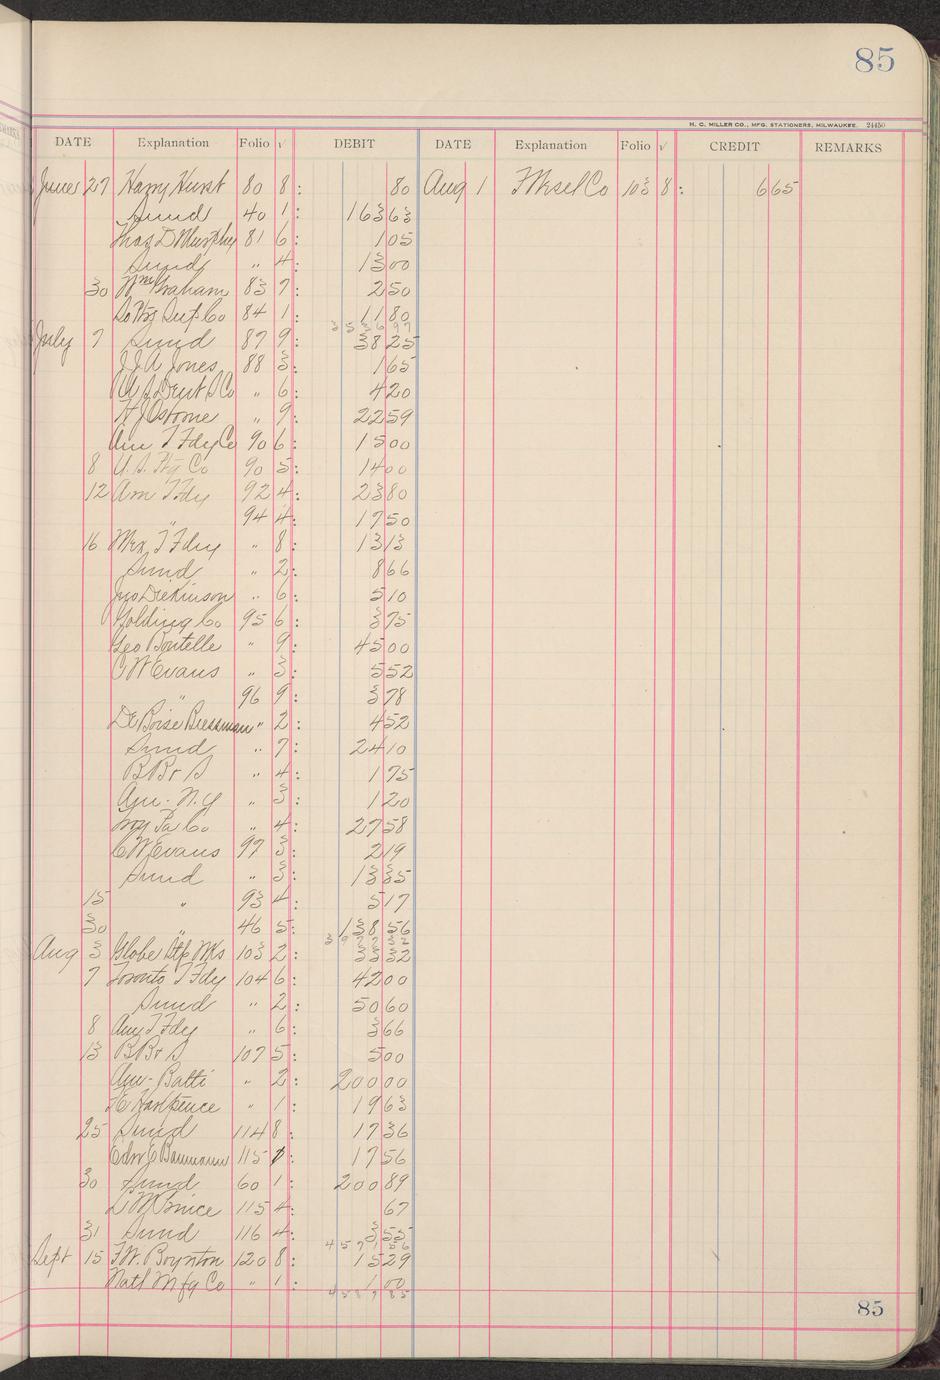 85
H. C. MILLER CO., MFG. STATIONERS, MILWAUKEE. 24450
DATE Explanation Folio √ DEBIT DATE Explanation Folio √ CREDIT REMARKS
June 27 Harry Hurst 80 8: 80 Aug 1 Co 103 8: 6 65
Sund 40 1: 163 63
Thos D Murphy 81 6: 1 05
Sund " 4: 13 00
30 Wm Graham 83 7: 2 50
So Ptg Sup Co 84 1: 11 80
July 7 Sund 87 9: 38 25
J J A Jones 88 3: 1 65
" 6: 4 20
H J Osborne " 9: 22 59
Am T Fdy Co 90 6: 15 00
8 U. S. Co 90 5: 14 00
12 Am T Fdy 92 4: 23 80
" 94 4: 17 50
16 Mex T Fdry " 8: 13 13
Sund " 2: 8 66
Jno Dickinson " 6: 5 10
Golding Co 95 6: 3 75
Geo Boutelle " 9: 45 00
C W Evans " 3: 5 52
" 96 9: 3 78
De Boise " 2: 4 52
Sund " 7: 24 10
B B & S " 4: 1 75
Am. N.Y " 3: 1 20
Co " 4: 27 58
C W Evans 97 3: 2 19
Sund " 3: 13 35
15 " 93 4: 5 17
30 " 46 5: 138 56
Aug 3 Globe Wks 103 2: 33 32
7 Toronto T Fdy 104 6: 42 00
Sund " 2: 50 60
8 Am T Fdy " 6: 3 66
13 B B & S 107 5: 5 00
Am - Balti " 2: 200 00
" 1: 19 63
25 Sund 114 8: 17 36
Edw E Baumann 115 1: 17 56
30 Sund 60 1: 200 89
L M Prince 115 4: 67
31 Sund 116 4: 3 55
Sept 15 F.W. Boynton 120 8: 15 29
Natl Mfg Co " 1: 1 00
85